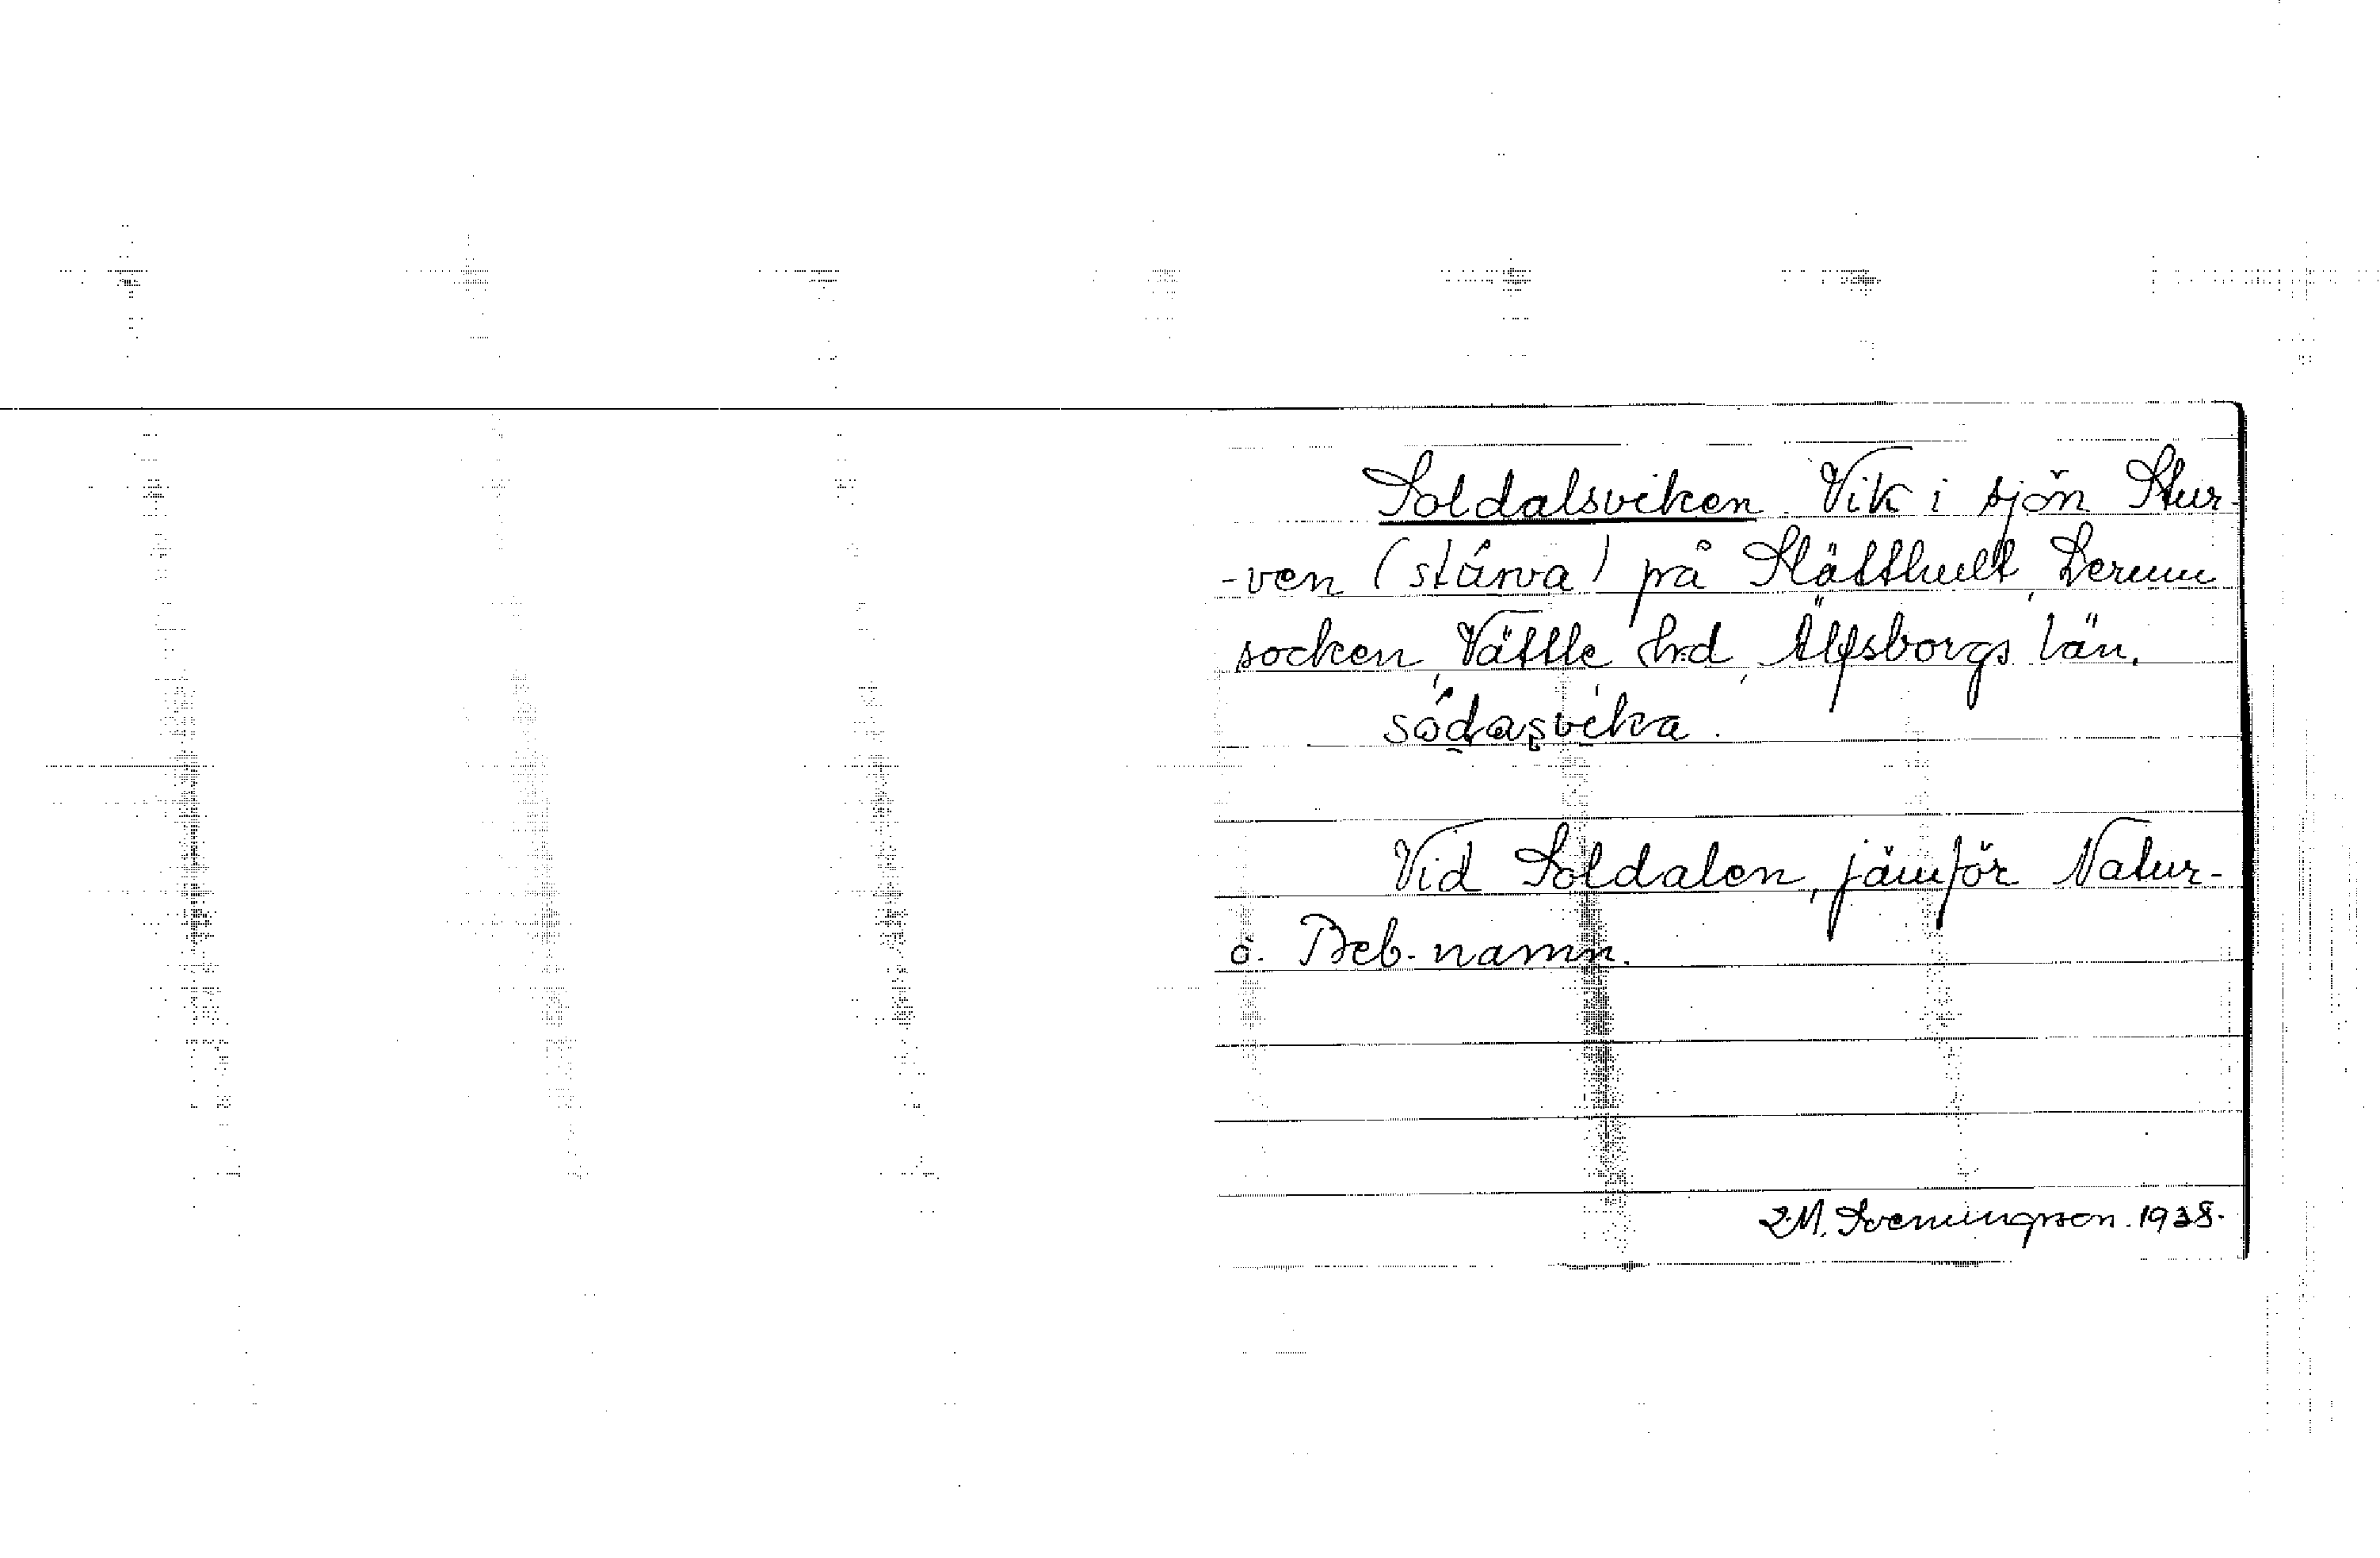 Soldalsviken. Vik i sjön Stur-
-ven (stárva) på Slätthult, Lerum
socken, Vättle hrd, Älfsborgs län.
södasvika.
Vid Soldalen, jämför Natur-
o. Beb-namn.
M. Sveningson. 1938.